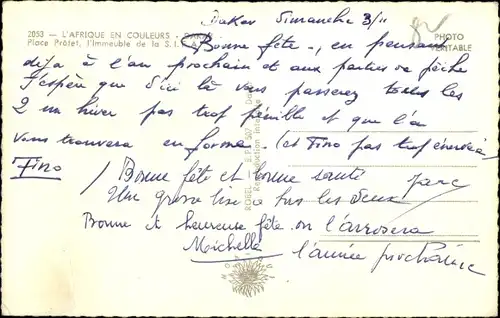 Dakar Dimanche 3/11
2053 — L'AFRIQUE EN COULEURS - DAKAR
Place Prôtet, l'Immeuble de la S.I.
PHOTO VÉRITABLE
Bonne fête, en pensant
déjà à l'an prochain et aux parties de pêche
J'espère que d'ici là vous passerez tous les
2 un hiver pas trop pénible et que l'on
vous trouvera en forme. (et Fino pas trop énervée)
Fino / Bonne fête et bonne santé
Une grosse bise à tous les deux Marc
Bonne et heureuse fête on l'arrosera
Michelle l'année prochaine